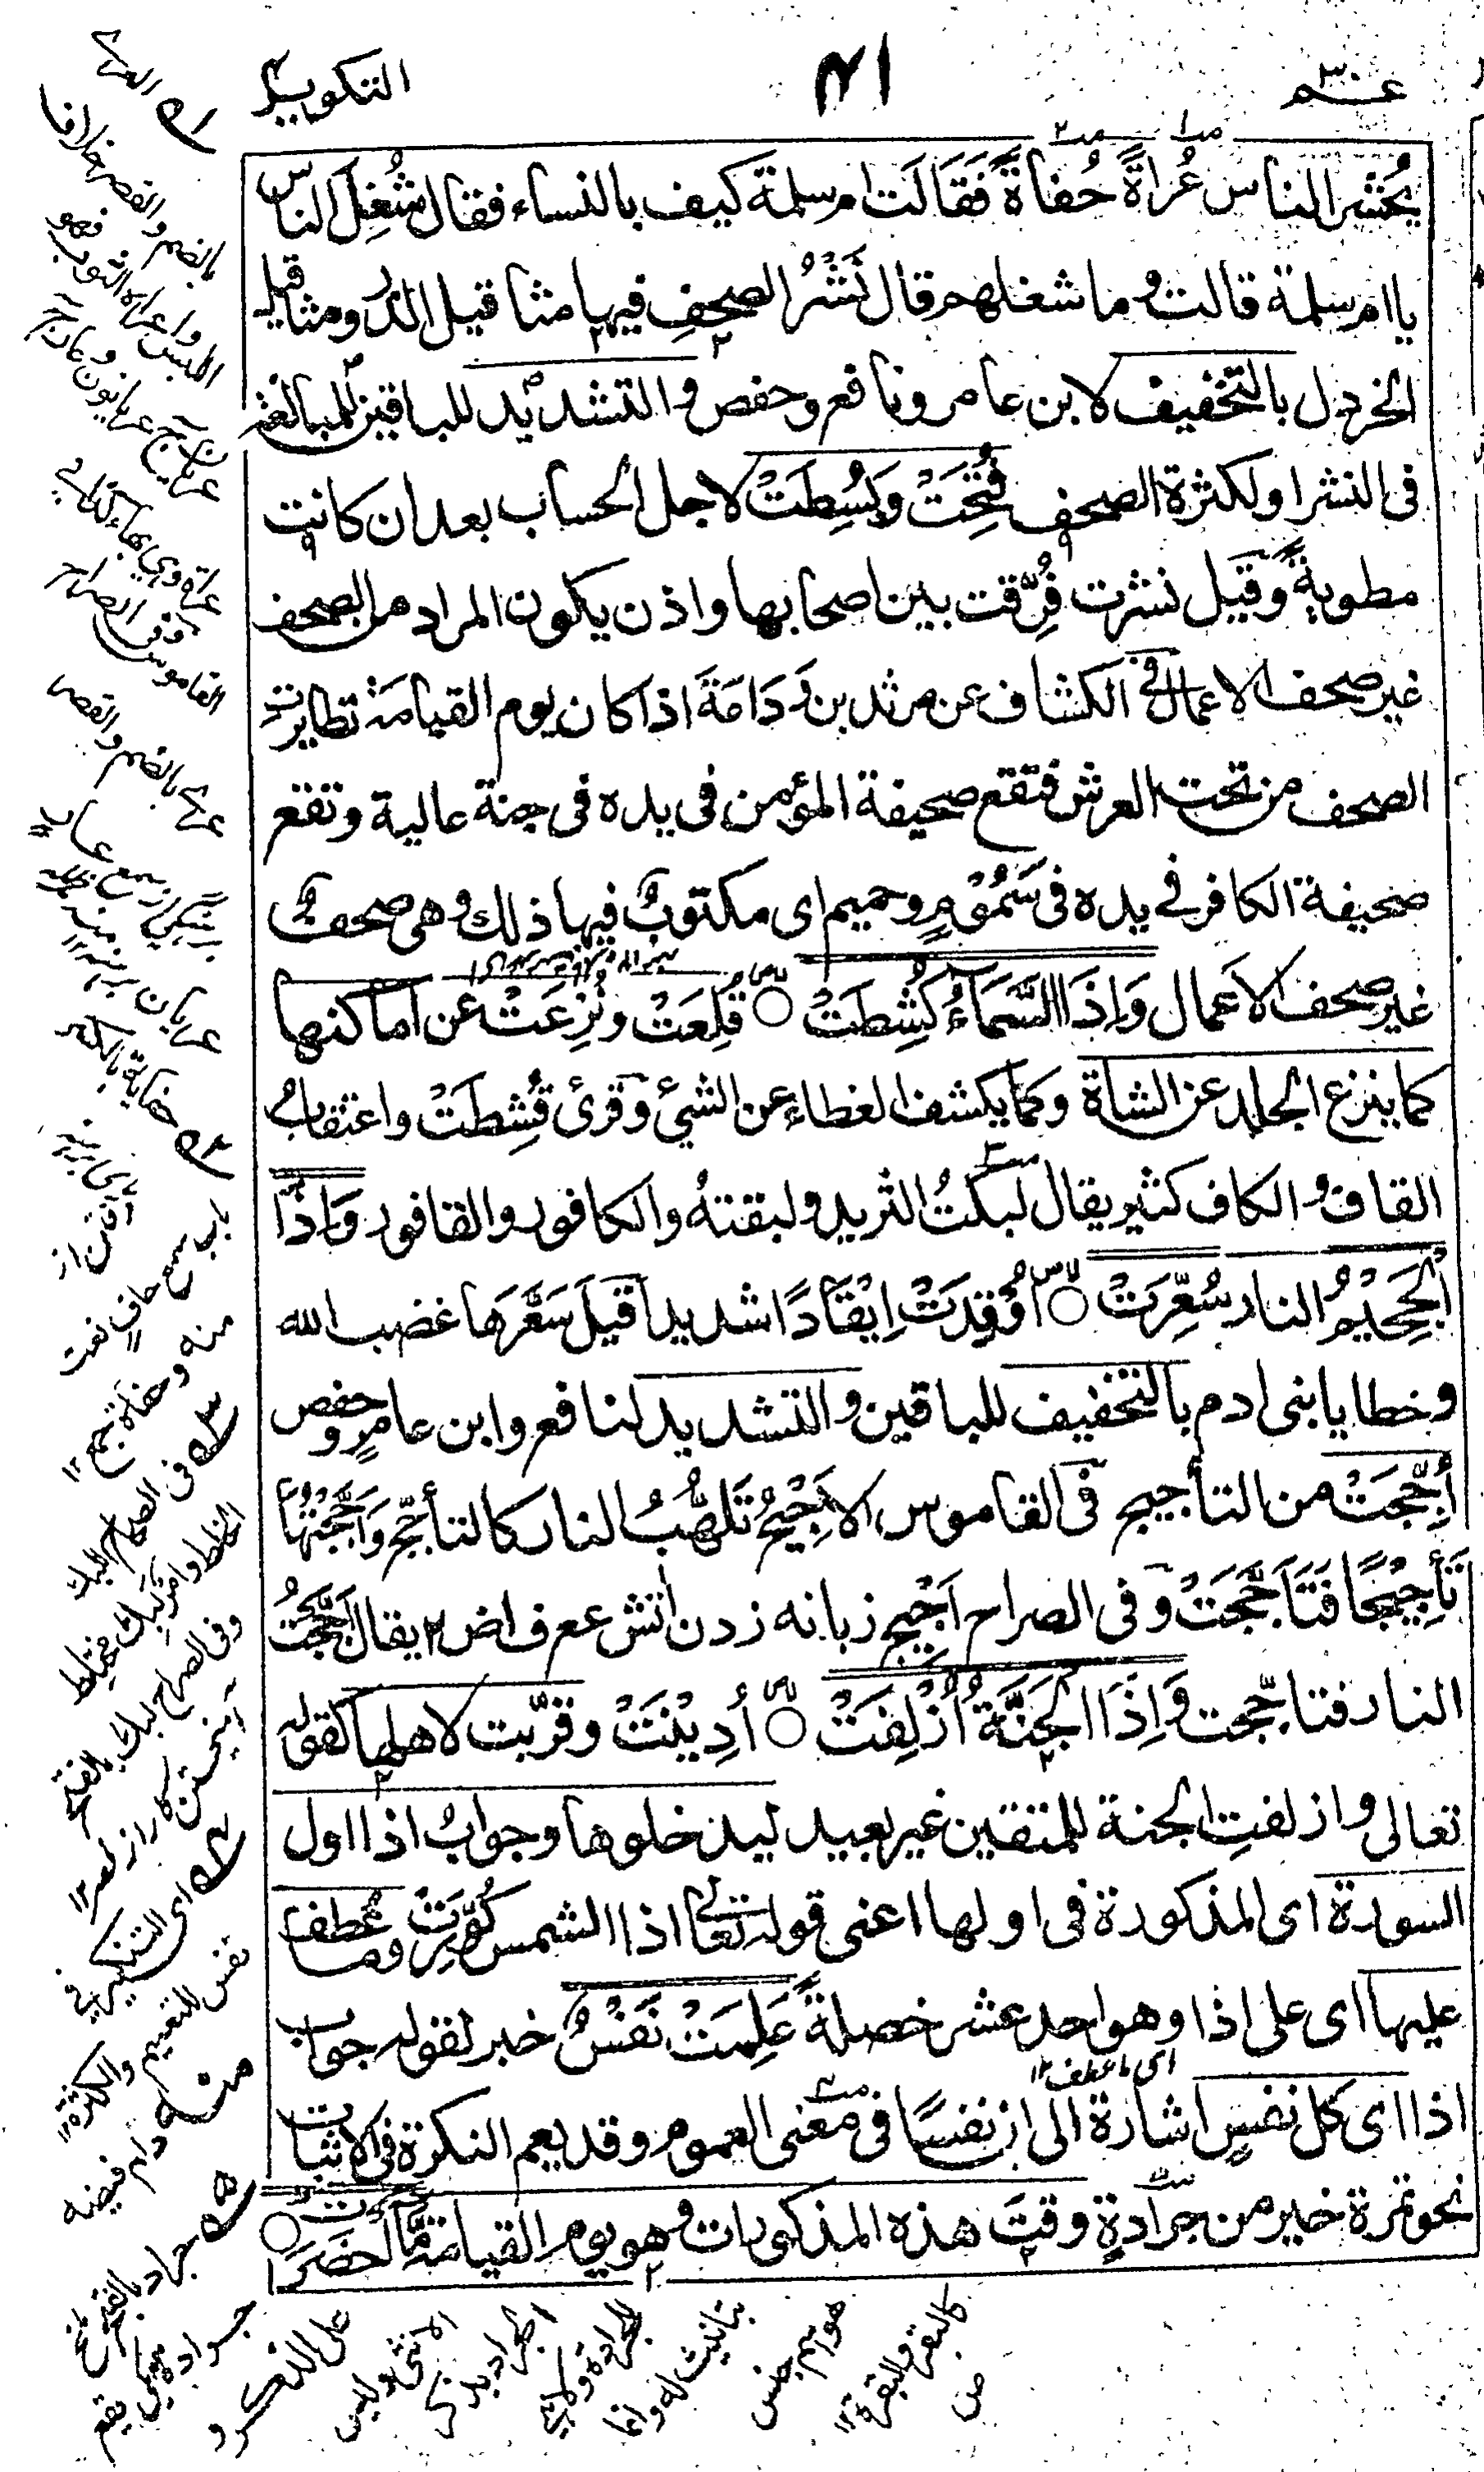 عـــم
٤١
التكوير
يُحشر الناس عُراةً حُفاةً فَقَالَت ام سلمة كيف بالنساء فقال شُغِلَ الناس
يا ام سلمة قالت وما شغلهم قال نَشْرُ الصحفِ فيها مثاقيل الذر ومثاقيل
الخردل بالتخفيف لابن عامر ونافع وحفص والتشديد للباقين للمبالغة
فى النشر او لكثرة الصحف فُتِحَتْ وَبُسِطَتْ لاجل الحساب بعد ان كانت
مطويةً وقيل نشرت فُرِّقت بين اصحابها واذن يكون المراد من الصحف
غير صحف الاعمال فى الكشاف عن مرثد بن وَدَاعَةَ اذا كان يوم القيامة تطايرت
الصحف من تحت العرش فتقع صحيفة المؤمن فى يده فى جنة عالية وتقع
صحيفة الكافر فى يده فى سَمُوْمٍ وحميم اى مكتوبٌ فيها ذلك وهى صحفٌ
غير صحف الاعمال وَاِذَا السَّمَآءُ كُشِطَتْ ○ قُلِعَتْ ونُزِعَتْ عن اماكنها
كما ينزع الجلد عن الشاة وكما يكشف الغطاء عن الشئ وقرئ قُشِطَتْ واعتقابُ
القاف والكاف كثير يقال لبكتُ الثريد ولبقته والكافور والقافور وَاِذَا
الْجَحِيْمُ النار سُعِّرَتْ ○ اُوْقِدَتْ اِيْقَادًا شديدا قيل سَعَّرَها غضب الله
وخطايا بنى ادم بالتخفيف للباقين والتشديد لنافع وابن عامرٍ وحفص
أُجِّجَتْ من التأجيج فى القاموس الاَجِيْجُ تَلَهُّبُ النار كالتأجّج وَاَجَّجْتُهَا
تَأْجِيْجًا فَتَأَجَّجَتْ وفى الصراح اَجِيْج زبانه زدن اتش ع ع ف اض ٢ يقال اَجَّجْتُ
النار فتاجّجت وَاِذَا الْجَنَّةُ اُزْلِفَتْ ○ أُدِيْنَتْ وقرّبت لاهلها كقوله
تعالى وازلفتِ الجنة للمتقين غير بعيد ليدخلوها وجوابُ اذا اول
السورة اى المذكورة فى اولها اعنى قوله تعالى اذا الشمس كُوِّرَتْ وما عُطف
عليها اى على اذا وهو احد عشر خصلةً عَلِمَتْ نَفْسٌ خبر لقوله جواب
اى ما عطف ١٢
اذا اى كل نفسٍ اشارة الى ان نفسًا فى معنى العموم وقد يعم النكرة فى الاثبات
نحو تمرة خير من جرادةٍ وقتَ هذه المذكورات وهو يوم القيامة مَّآ اَحْضَرَتْ ○
بالضم والقصر خلاف
اللبس واعراه الثوب فهو
القاموس وفى الصراح
عرى بالضم والقصر
باب سمع حافٍ نعت
منه وحفاة جمع ١٢
فى الصحاح اللبك
الخلط وامر لبك مختلط
وفى الصراح لبك بالفتح
آميختن كار از نصر ١٢
اى التنكير فى
نفس للتعميم والكثرة ١٢
منه دام فيضه
جراد بالفتح ملخ